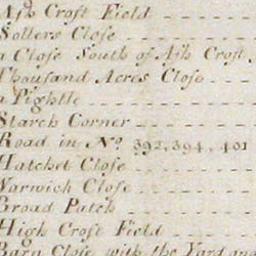 Ash Croft Field
Sollers Close
a Close South of Ash Croft
Thousand Acres Close
a Pightle
Starch Corner
Road in No. 392, 394, 401
Hatchet Close
Warwich Close
Broad Patch
High Croft Field
Barn Close with the Yard and